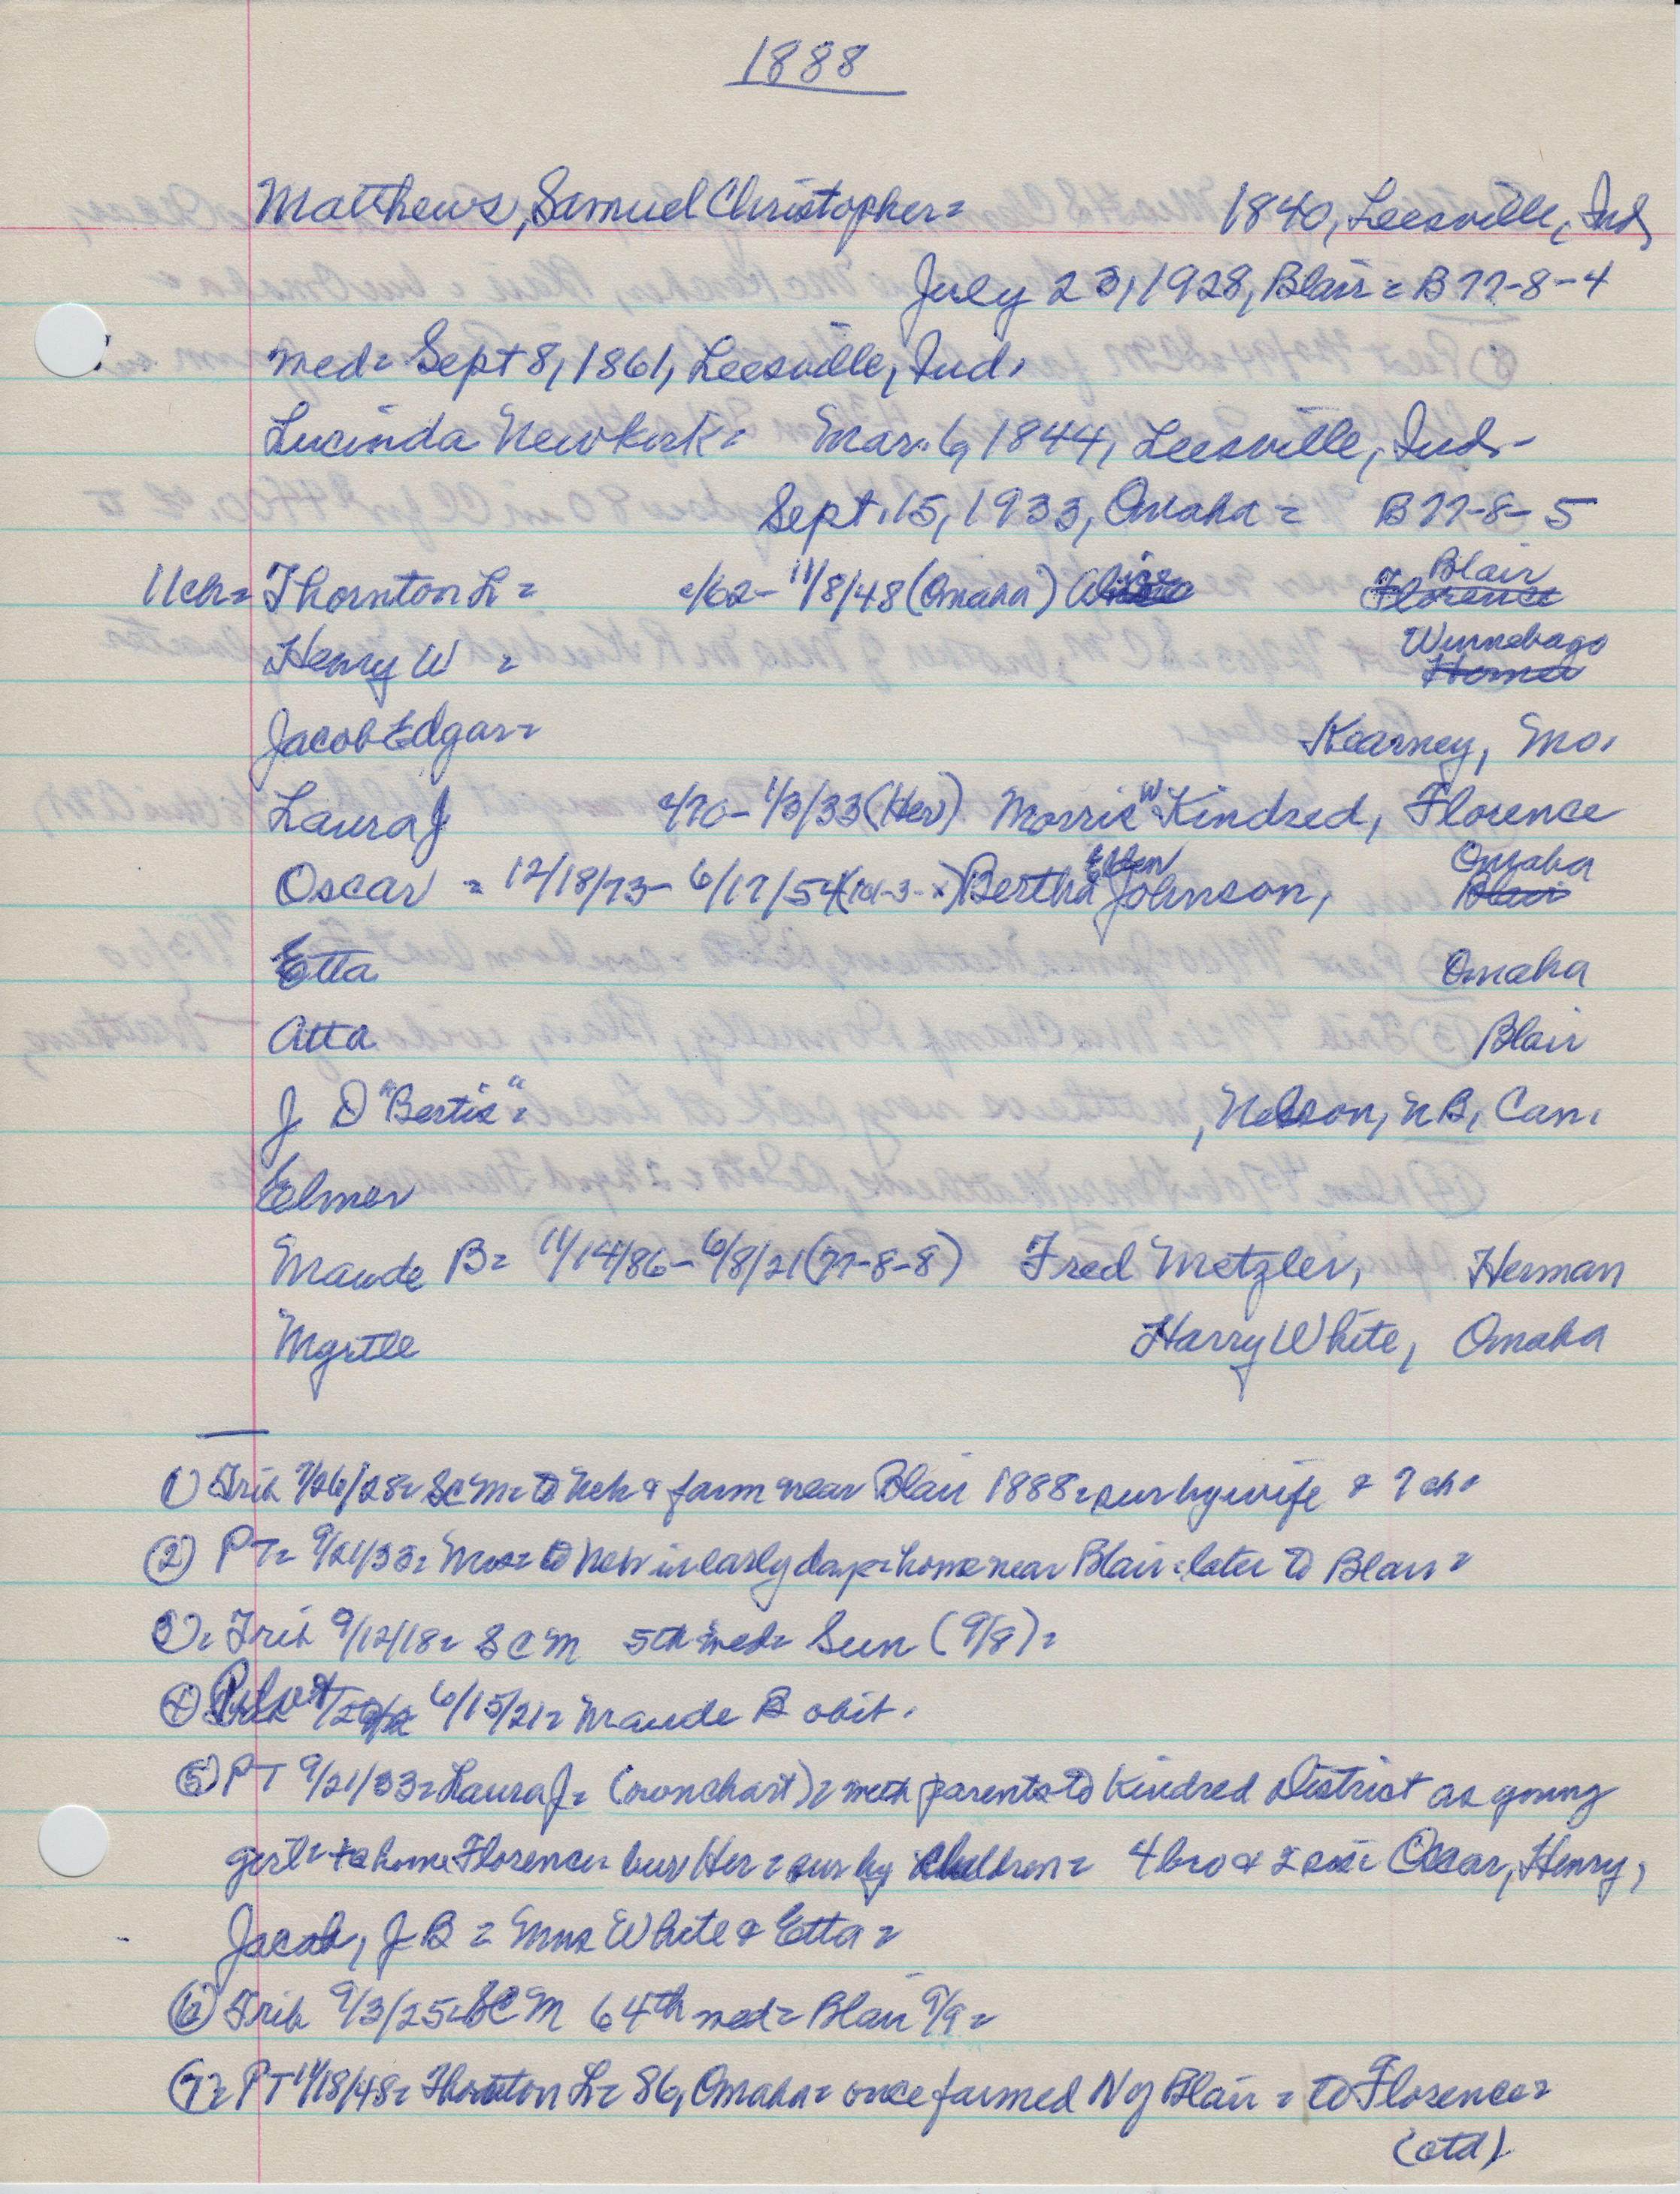 1888
Matthews, Samuel Christopher = 1840, Leesville, Ind,
July 23, 1928, Blair = B 77-8-4
med = Sept 8, 1861, Leesville, Ind.
Lucinda Newkirk = Mar. 6, 1844, Leesville, Ind -
Sept. 15, 1933, Omaha = B 77-8-5
Blair
11 ch = Thornton L = c/62 - 11/8/48 (Omaha) Alice Florence
Winnebago
Henry W = Homer
Jacob Edgar = Kearney, Mo.
Laura J c/70 - 1/3/33 (Her) Morris W Kindred, Florence
Ellen Omaha
Oscar = 12/18/73 - 6/17/54 Bertha Johnson, Blair
Etta Omaha
Atta Blair
J D "Bertie" = , Nelson, NB, Can.
Elmer
Maude B = 11/14/86 - 6/8/21 (77-8-8) Fred Metzler, Herman
Myrtle Harry White, Omaha
① Trib 7/26/28 = SCM = to Neb & farm near Blair 1888 = sur by wife & 7 ch =
② PT = 9/21/33 = Mrs = to Neb in early days = home near Blair = later to Blair =
③ = Trib 9/12/18 = SCM med = Sun (9/8) =
④ Pilot 6/15/21 = Maude B obit.
⑤ PT 9/21/33 = Laura J = (on chart) = with parents to Kindred District as young
girl = home Florence = bur Her = sur by children = 4 bro & 2 sis = Oscar, Henry,
Jacob, J B = Mrs White & Etta =
⑥ Trib 9/3/25 = SCM 64th med = Blair 9/9 =
⑦ = PT 11/18/48 = Thornton L = 86, Omaha = once farmed N of Blair = to Florence =
(ctd)